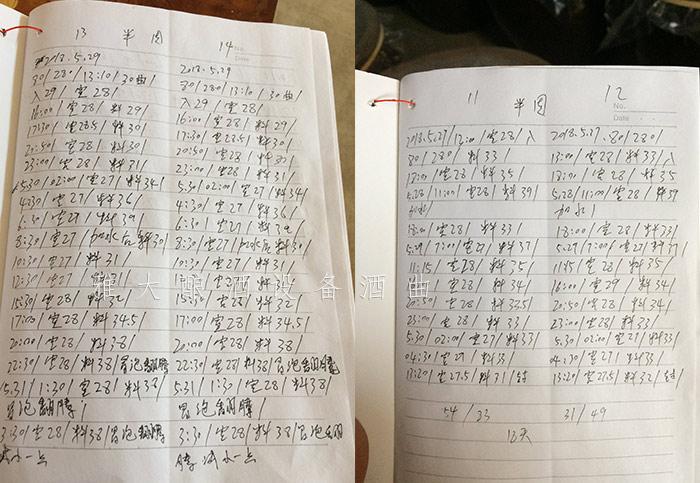 13 半肉 14
2018.5.29
30/28°/13:10/30曲/
入29/室28/
16:00/室28/料29/
17:30/室28.5/料30/
20:50/室28/料30/
23:00/室28/料31/
5.30/02:00/室27/料34/
4:30/室27/料36/
6:30/室27/料39/
8:30/室27/加水后料30/
10:30/室27/料31/
12:30/室27/料31/
15:30/室28/料32/
17:00/室28/料34.5/
20:00/室28/料38/
22:30/室28/料38/冒泡翻腾
5.31/1:30/室28/料38/
冒泡翻腾/
3:30/室28/料38/冒泡翻腾
减小一点
2018.5.29
30/28°/13:10/30曲/
入29/室28/
16:00/室28/料29/
17:30/室28.5/料30/
20:50/室28/料30/
23:00/室28/料31/
5.30/02:00/室27/料34/
4:30/室27/料36/
6:30/室27/料39/
8:30/室27/加水后料30/
10:30/室27/料31/
12:30/室27/料31/
15:30/室28/料32/
17:00/室28/料34.5/
20:00/室28/料38/
22:30/室28/料38/冒泡翻腾
5.31/1:30/室28/料38/
冒泡翻腾/
3:30/室28/料38/冒泡翻
腾减小一点
11 半肉 12
No.
Date
2018.5.27/12:00/室28/入
30/28°/料33/
18:00/室28/料35/
5.28/11:00/室28/料39/
加水/
18:00/室28/料33/
5.29/7:00/室27/料37/
11:15/室28/料35/
室28/料34/
20:50/室28/料33.5/
23:00/室28/料33/
5.30/02:00/室27/料33/
04:30/室27/料33/
13:20/室27.5/料31/封
54/33
2018.5.27.30/28°/
13:00/室28/料33/入
18:00/室28/料35
5.28/11:00/室28/料39
加水/
18:00/室28/料33/
5.29/7:00/室27/料37/
11:15/室28/料35/
16:00/室29/料34/
20:50/室28/料34/
23:00/室28/料33/
5.30/02:00/室27/料33/
04:30/室27/料33/
13:20/室27.5/料32/封
31/49
12天
雅大酿酒设备酒曲